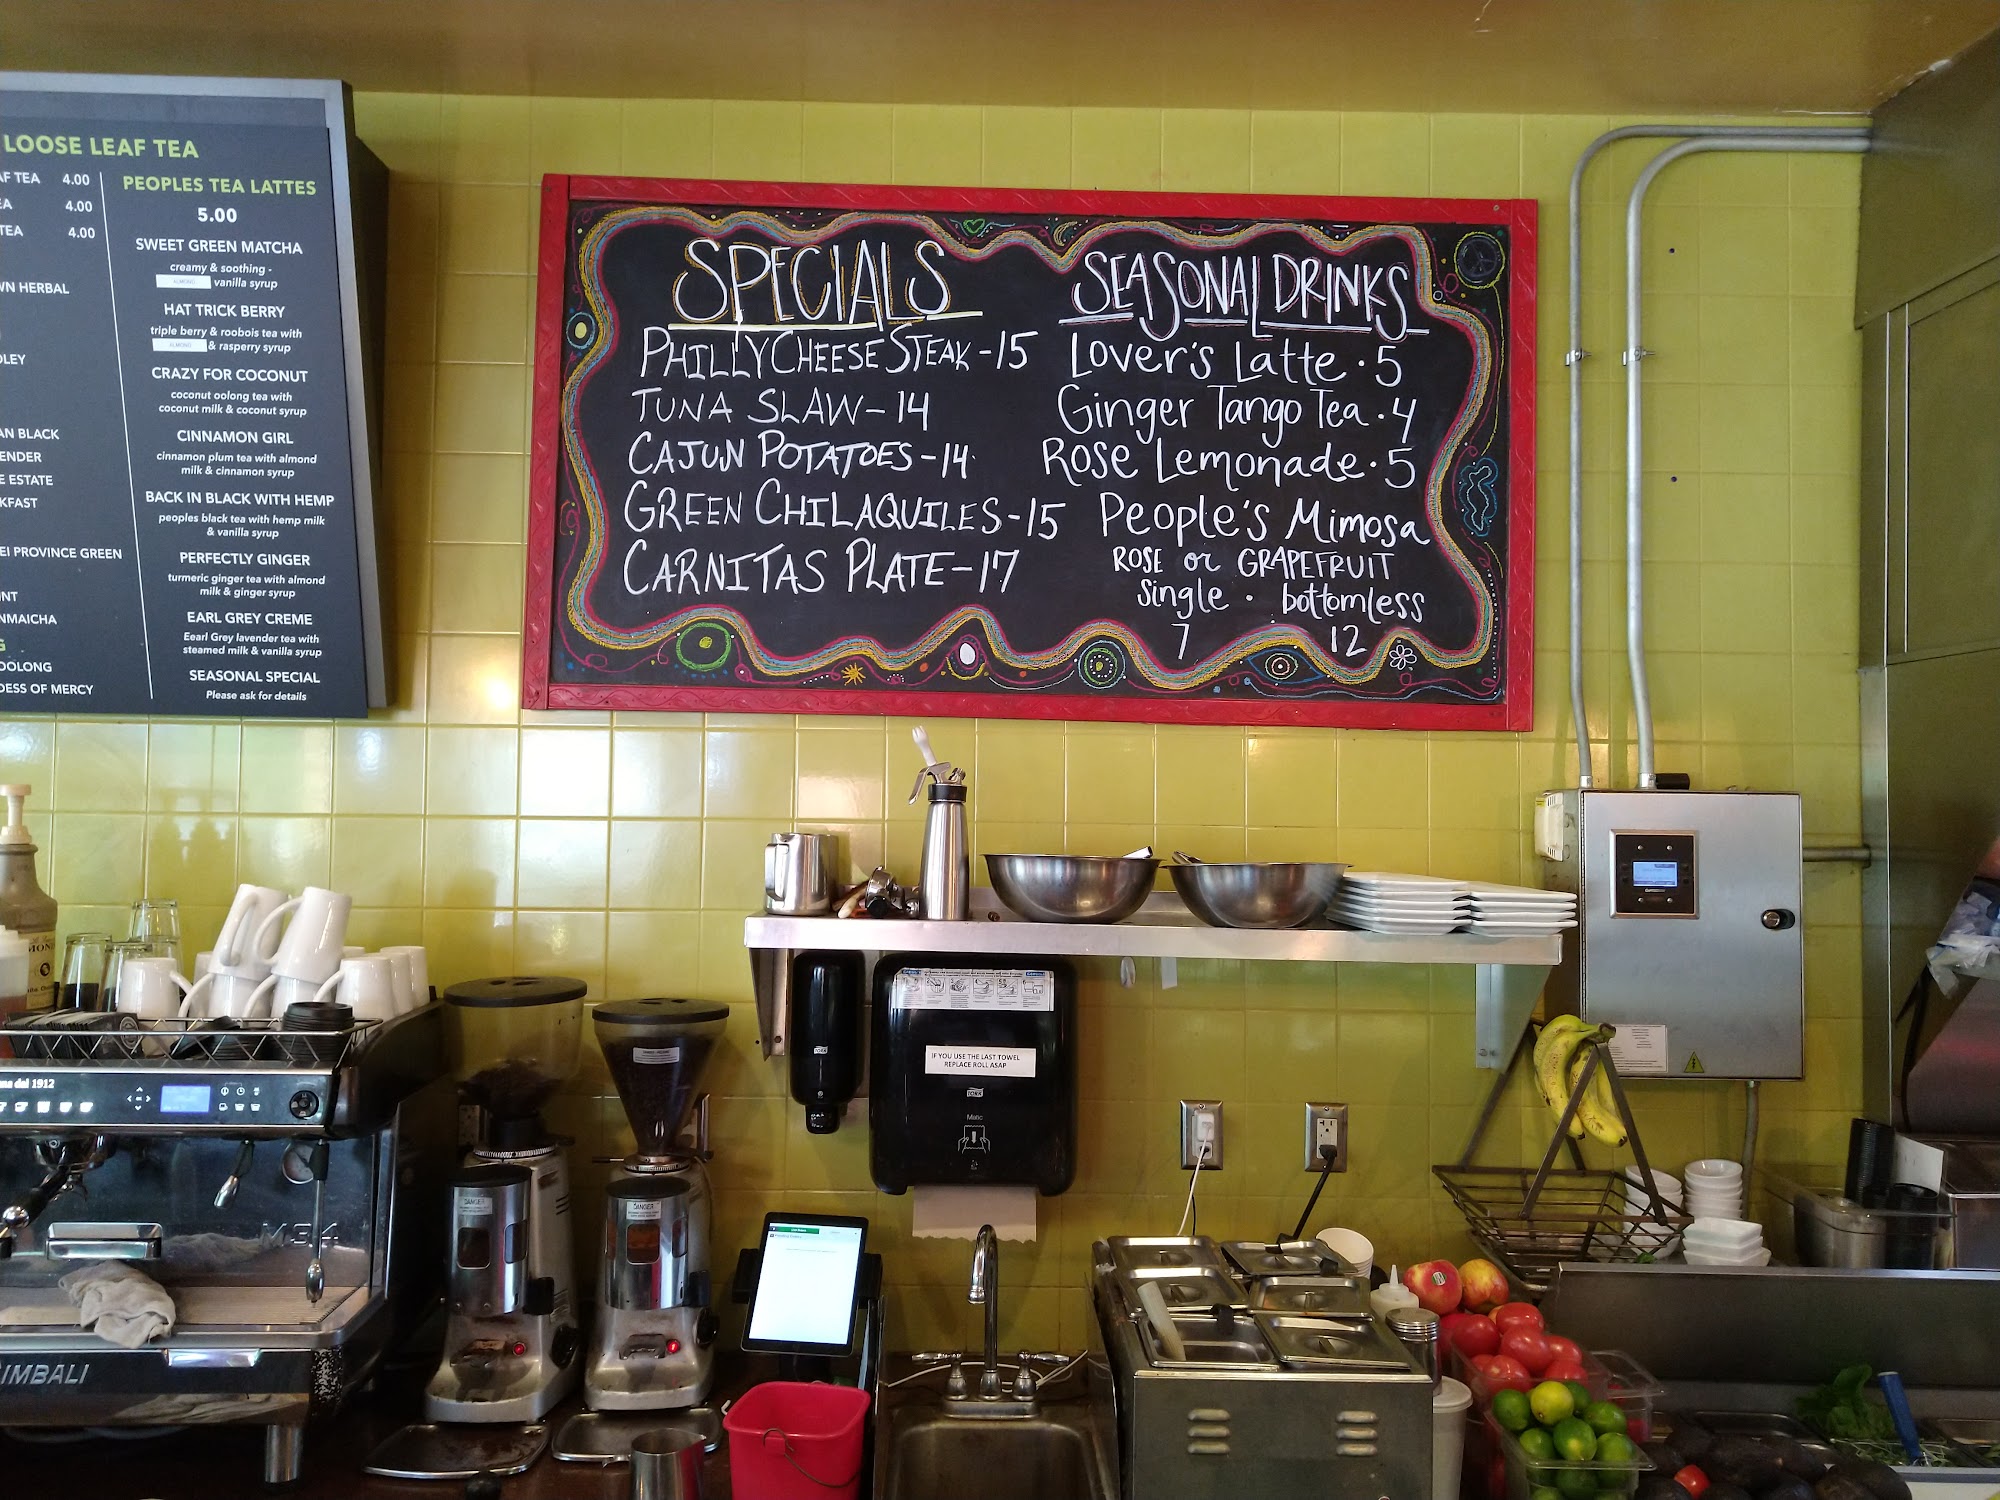 LOOSE LEAF TEA
TEA 4.00
4.00
TEA 4.00
HERBAL
BLACK
ESTATE
PROVINCE GREEN
OOLONG
OF MERCY
PEOPLES TEA LATTES
5.00
SWEET GREEN MATCHA
creamy & soothing -
ALMOND vanilla syrup
HAT TRICK BERRY
triple berry & roobois tea with
ALMOND & rasperry syrup
CRAZY FOR COCONUT
coconut oolong tea with
coconut milk & coconut syrup
CINNAMON GIRL
cinnamon plum tea with almond
milk & cinnamon syrup
BACK IN BLACK WITH HEMP
peoples black tea with hemp milk
& vanilla syrup
PERFECTLY GINGER
turmeric ginger tea with almond
milk & ginger syrup
EARL GREY CREME
Eearl Grey lavender tea with
steamed milk & vanilla syrup
SEASONAL SPECIAL
Please ask for details
SPECIALS
PHILLY CHEESE STEAK - 15
TUNA SLAW - 14
CAJUN POTATOES - 14
GREEN CHILAQUILES - 15
CARNITAS PLATE - 17
SEASONAL DRINKS
Lover's Latte · 5
Ginger Tango Tea · 4
Rose Lemonade · 5
People's Mimosa
ROSE or GRAPEFRUIT
single · bottomless
7 12
IF YOU USE THE LAST TOWEL
REPLACE ROLL ASAP
TORK
Matic
TORK
dal 1912
M34
DANGER
DANGER